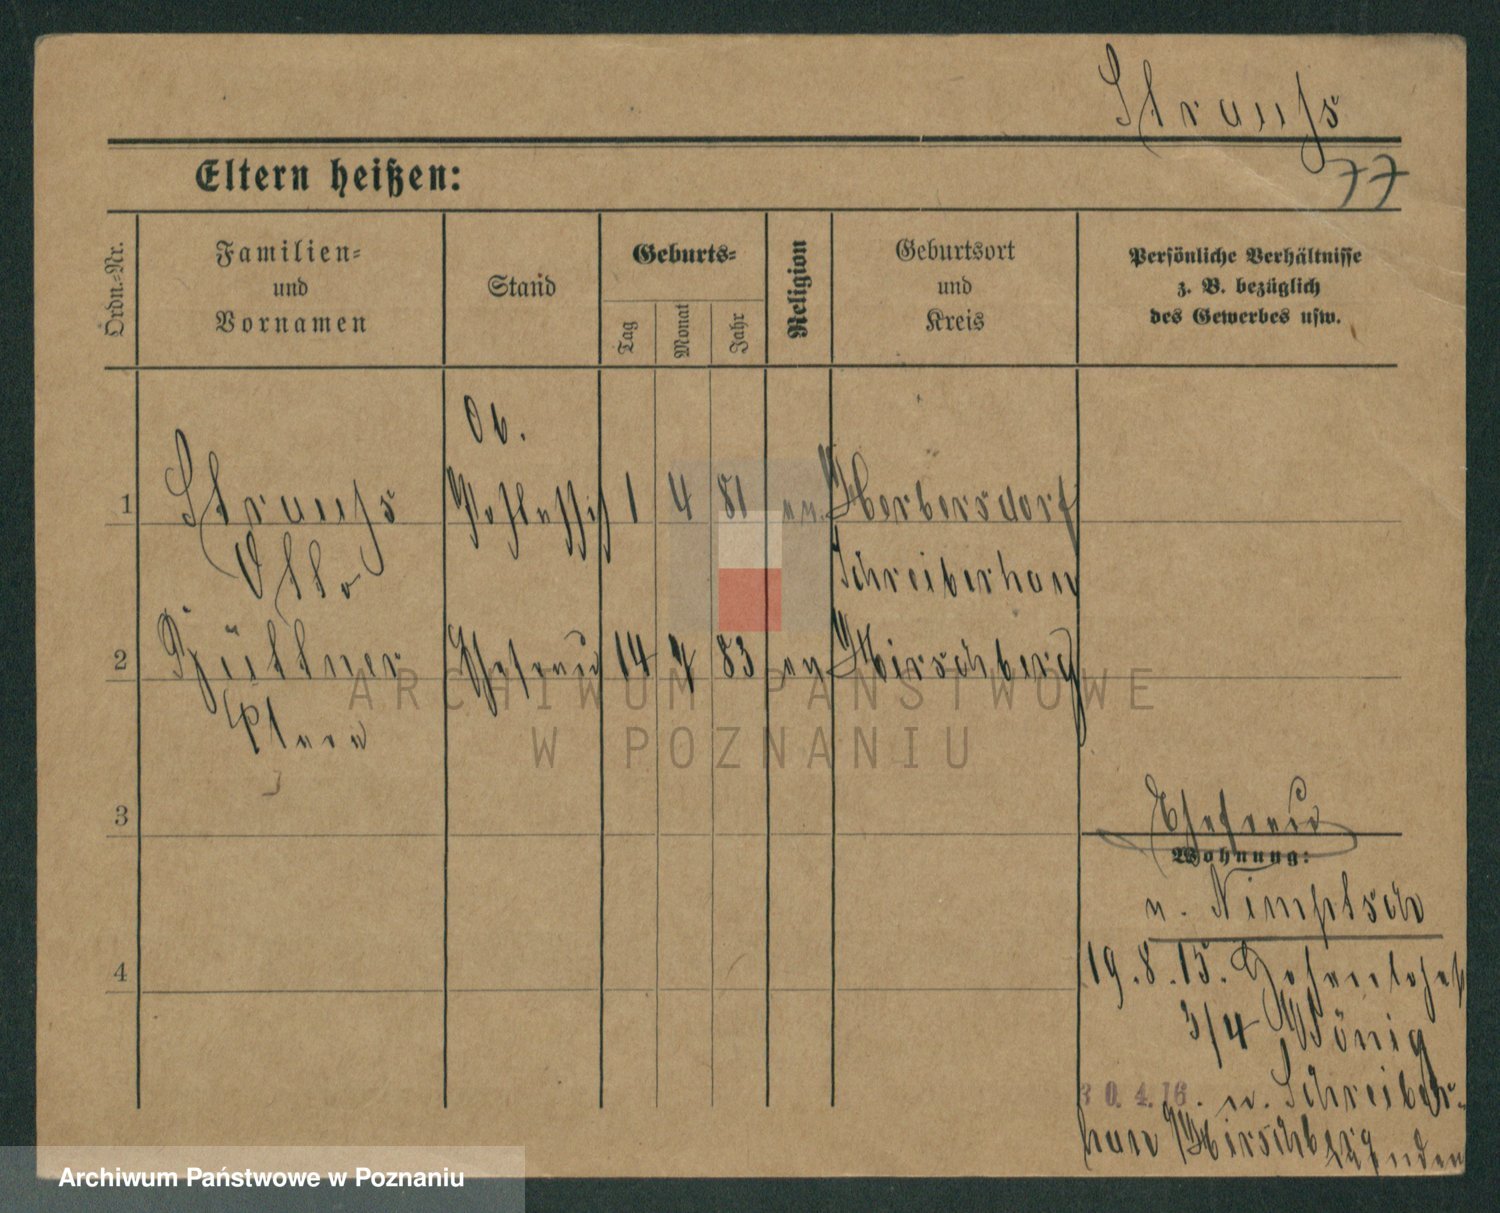 Strauss
77
Eltern heißen:
Ordn.-Nr.
Familien-
und
Vornamen
Stand
Geburts-
Tag
Monat
Jahr
Religion
Geburtsort
und
Kreis
Persönliche Verhältnisse
z. B. bezüglich
des Gewerbes usw.
Ob.
1 Strauss 1 4 81 ev. Herbersdorf
Otto Schreiberhau
2 Büttner Ehefrau 14 7 83 ev Hirschberg
Klara
3
Ehefrau
Wohnung:
n. Nimptsch
4
19.8.15.
3/4 König
30.4.16. n. Schreiber-
hau Hirschberg
ARCHIWUM PAŃSTWOWE
W POZNANIU
Archiwum Państwowe w Poznaniu